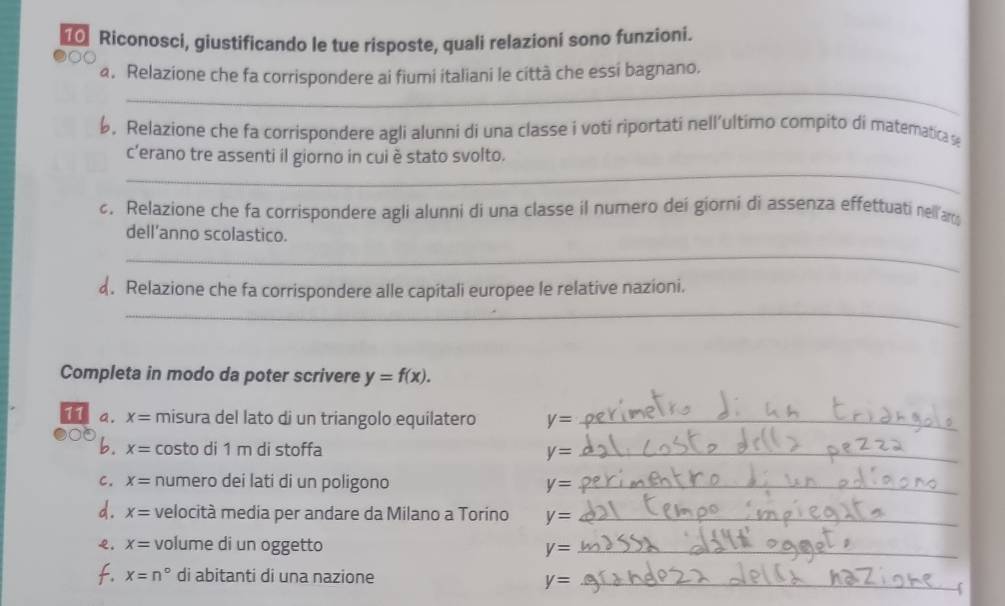 10 Riconosci, giustificando le tue risposte, quali relazioni sono funzioni.
a. Relazione che fa corrispondere ai fiumi italiani le città che essi bagnano.
b. Relazione che fa corrispondere agli alunni di una classe i voti riportati nell'ultimo compito di matematica se
c'erano tre assenti il giorno in cui è stato svolto.
c. Relazione che fa corrispondere agli alunni di una classe il numero dei giorni di assenza effettuati nell'arco
dell'anno scolastico.
d. Relazione che fa corrispondere alle capitali europee le relative nazioni.
Completa in modo da poter scrivere y = f(x).
11 a. x = misura del lato di un triangolo equilatero y = perimetro di un triangolo
b. x = costo di 1 m di stoffa y = dal costo della pezza
c. x = numero dei lati di un poligono y = perimentro di un
d. x = velocità media per andare da Milano a Torino y = dal tempo impiegato
e. x = volume di un oggetto y = massa
f. x = n° di abitanti di una nazione y = grandezza della nazione